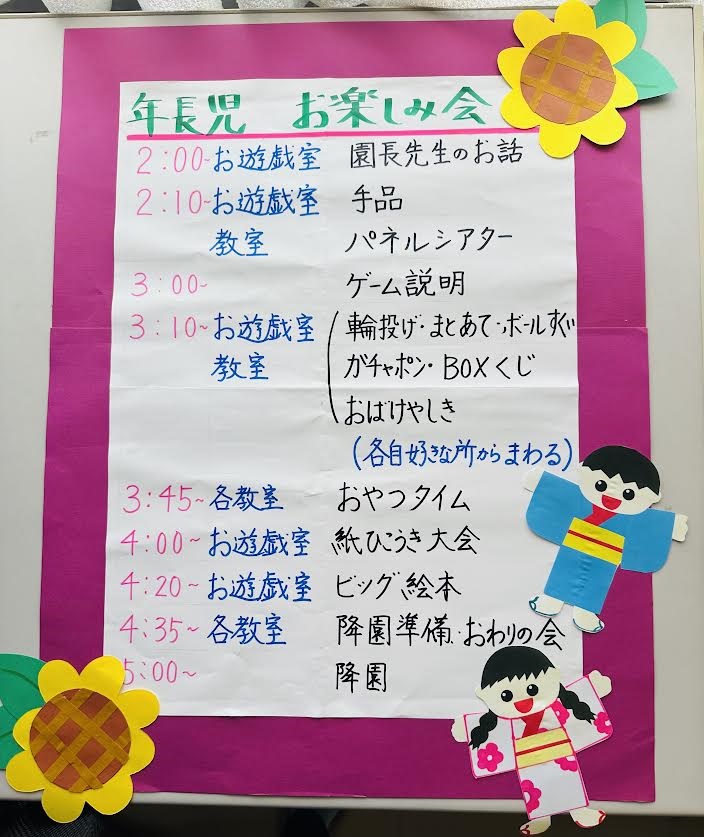 年長児 お楽しみ会
2:00~お遊戯室 園長先生のお話
2:10~お遊戯室 手品
教室 パネルシアター
3:00~ ゲーム説明
3:10~お遊戯室 輪投げ・まとあて・ボールすくい
教室 ガチャポン・BOXくじ
おばけやしき
(各自好きな所からまわる)
3:45~各教室 おやつタイム
4:00~お遊戯室 紙ひこうき大会
4:20~お遊戯室 ビッグ絵本
4:35~各教室 降園準備・おわりの会
5:00~ 降園